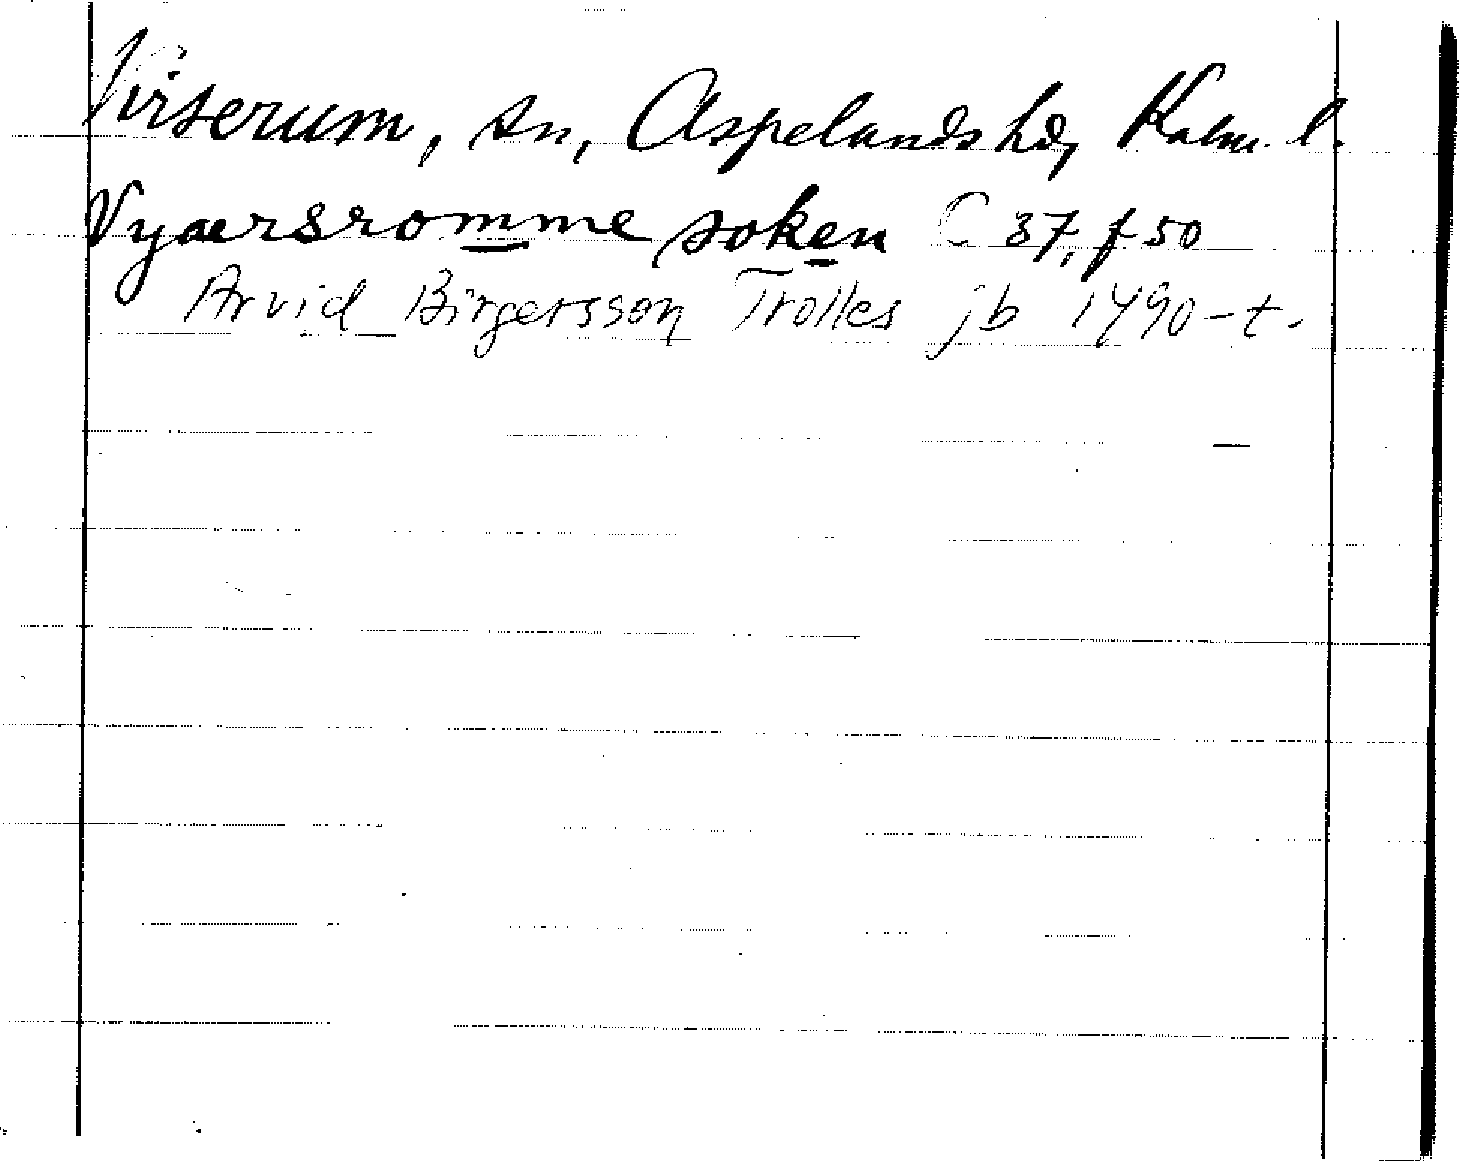 Virserum, sn, Aspelands hd, Kalm. l.
Vyaersromme soken C 37, f 50
Arvid Birgersson Trolles jb 1490-t.